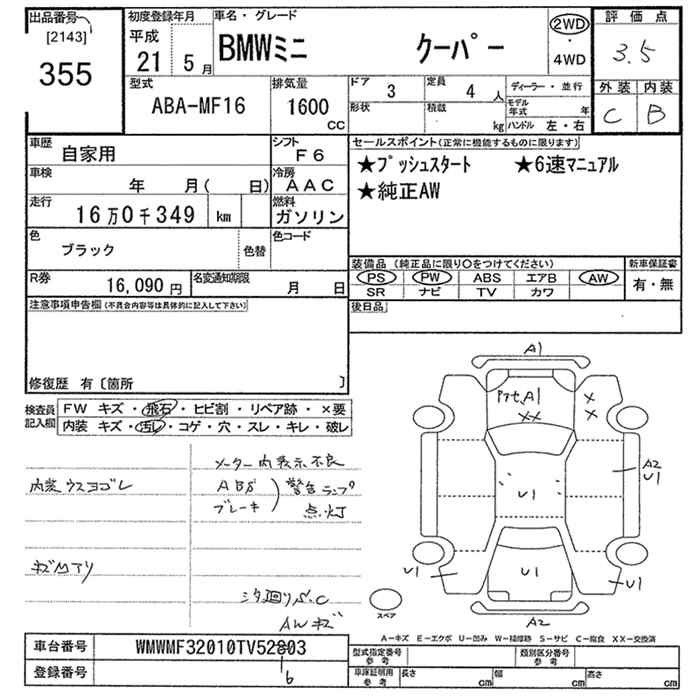 出品番号 [2143] 355
初度登録年月 平成 21年 5月
車名・グレード BMWミニ クーパー
2WD・4WD
評価点 3.5
外装 C 内装 B
型式 ABA-MF16
排気量 1600 CC
ドア 3
形状
定員 4人
積載 kg
ディーラー・並行
モデル年式 年
ハンドル 左・右
車歴 自家用
シフト F6
車検 年 月( 日)
冷房 AAC
走行 16万0千349 km
燃料 ガソリン
色 ブラック 色替
色コード
R券 16,090円
名変通知期限 月 日
セールスポイント(正常に機能するものに限ります)
★プッシュスタート ★6速マニュアル
★純正AW
装備品(純正品に限り○をつけてください)
PS PW ABS エアB AW
SR ナビ TV カワ
新車保証書 有・無
後日品
注意事項申告欄(不具合内容等は具体的に記入して下さい)
修復歴 有〔箇所 〕
検査員記入欄
FW キズ・飛石・ヒビ割・リペア跡・×要
内装 キズ・汚レ・コゲ・穴・スレ・キレ・破レ
メーター内表示不良
内装ウスヨゴレ
ABS
ブレーキ
警告ランプ
点灯
キズMアリ
シタ廻りS.C
AWキズ
A1
A1
XX
×
×
A2
U1
U1
U1
U1
U1
A2
スペア
A-キズ E-エクボ U-凹み W-補修跡 S-サビ C-腐食 XX-交換済
車台番号 WMWMF32010TV52803
16
登録番号
型式指定番号 参考
類別区分番号 参考
車庫証明用 参考
長さ cm
幅 cm
高さ cm